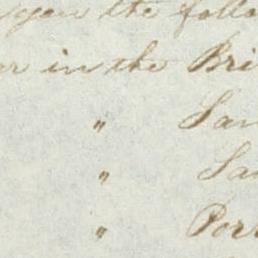 upon the follo
er in the Bri
" San
" Sa
" Por